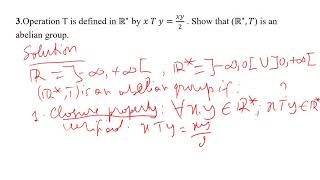 3.Operation T is defined in ℝ* by x T y = xy/2 . Show that (ℝ*, T) is an
abelian group.
Solution
ℝ = ]-∞, +∞[ , ℝ* = ]-∞, 0[ ∪ ]0, +∞[
(ℝ*, T) is an abelian group if:
1. Closure property: ∀ x, y ∈ ℝ*, x T y ∈ ℝ* ?
verified: x T y = xy/2